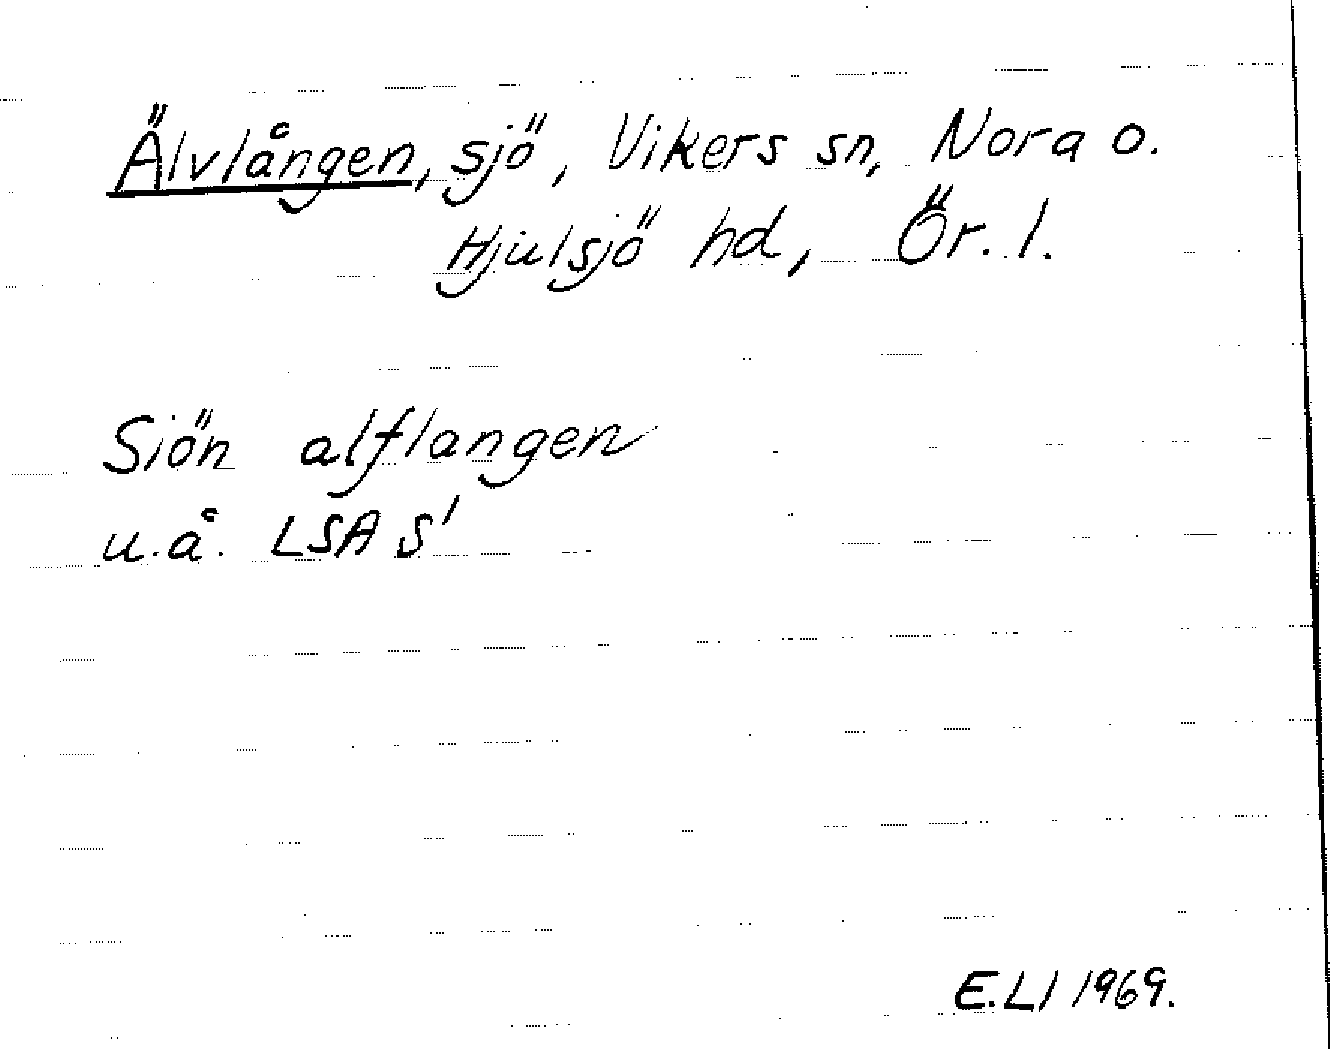 Älvlången, sjö, Vikers sn, Nora o.
Hjulsjö hd, Ör. l.
Siön alflangen
u.å. LSA S'
E.LI 1969.